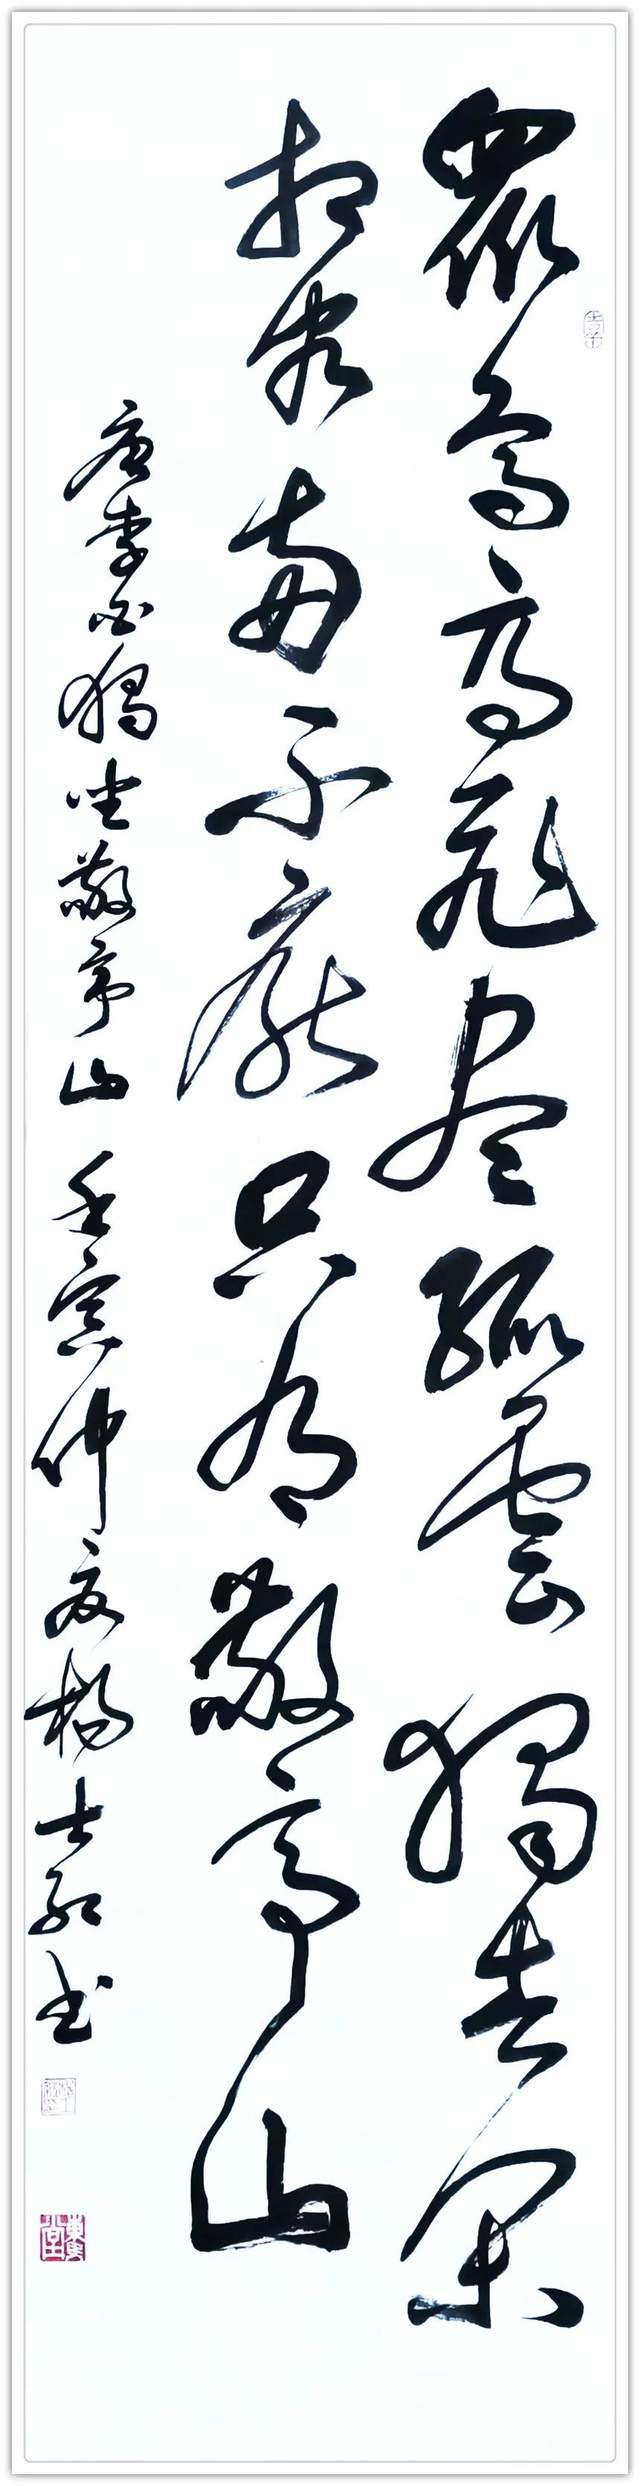 眾鳥高飛尽孤雲獨去閑
相看兩不厭只有敬亭山
唐李白獨坐敬亭山 壬寅仲夏楊士書